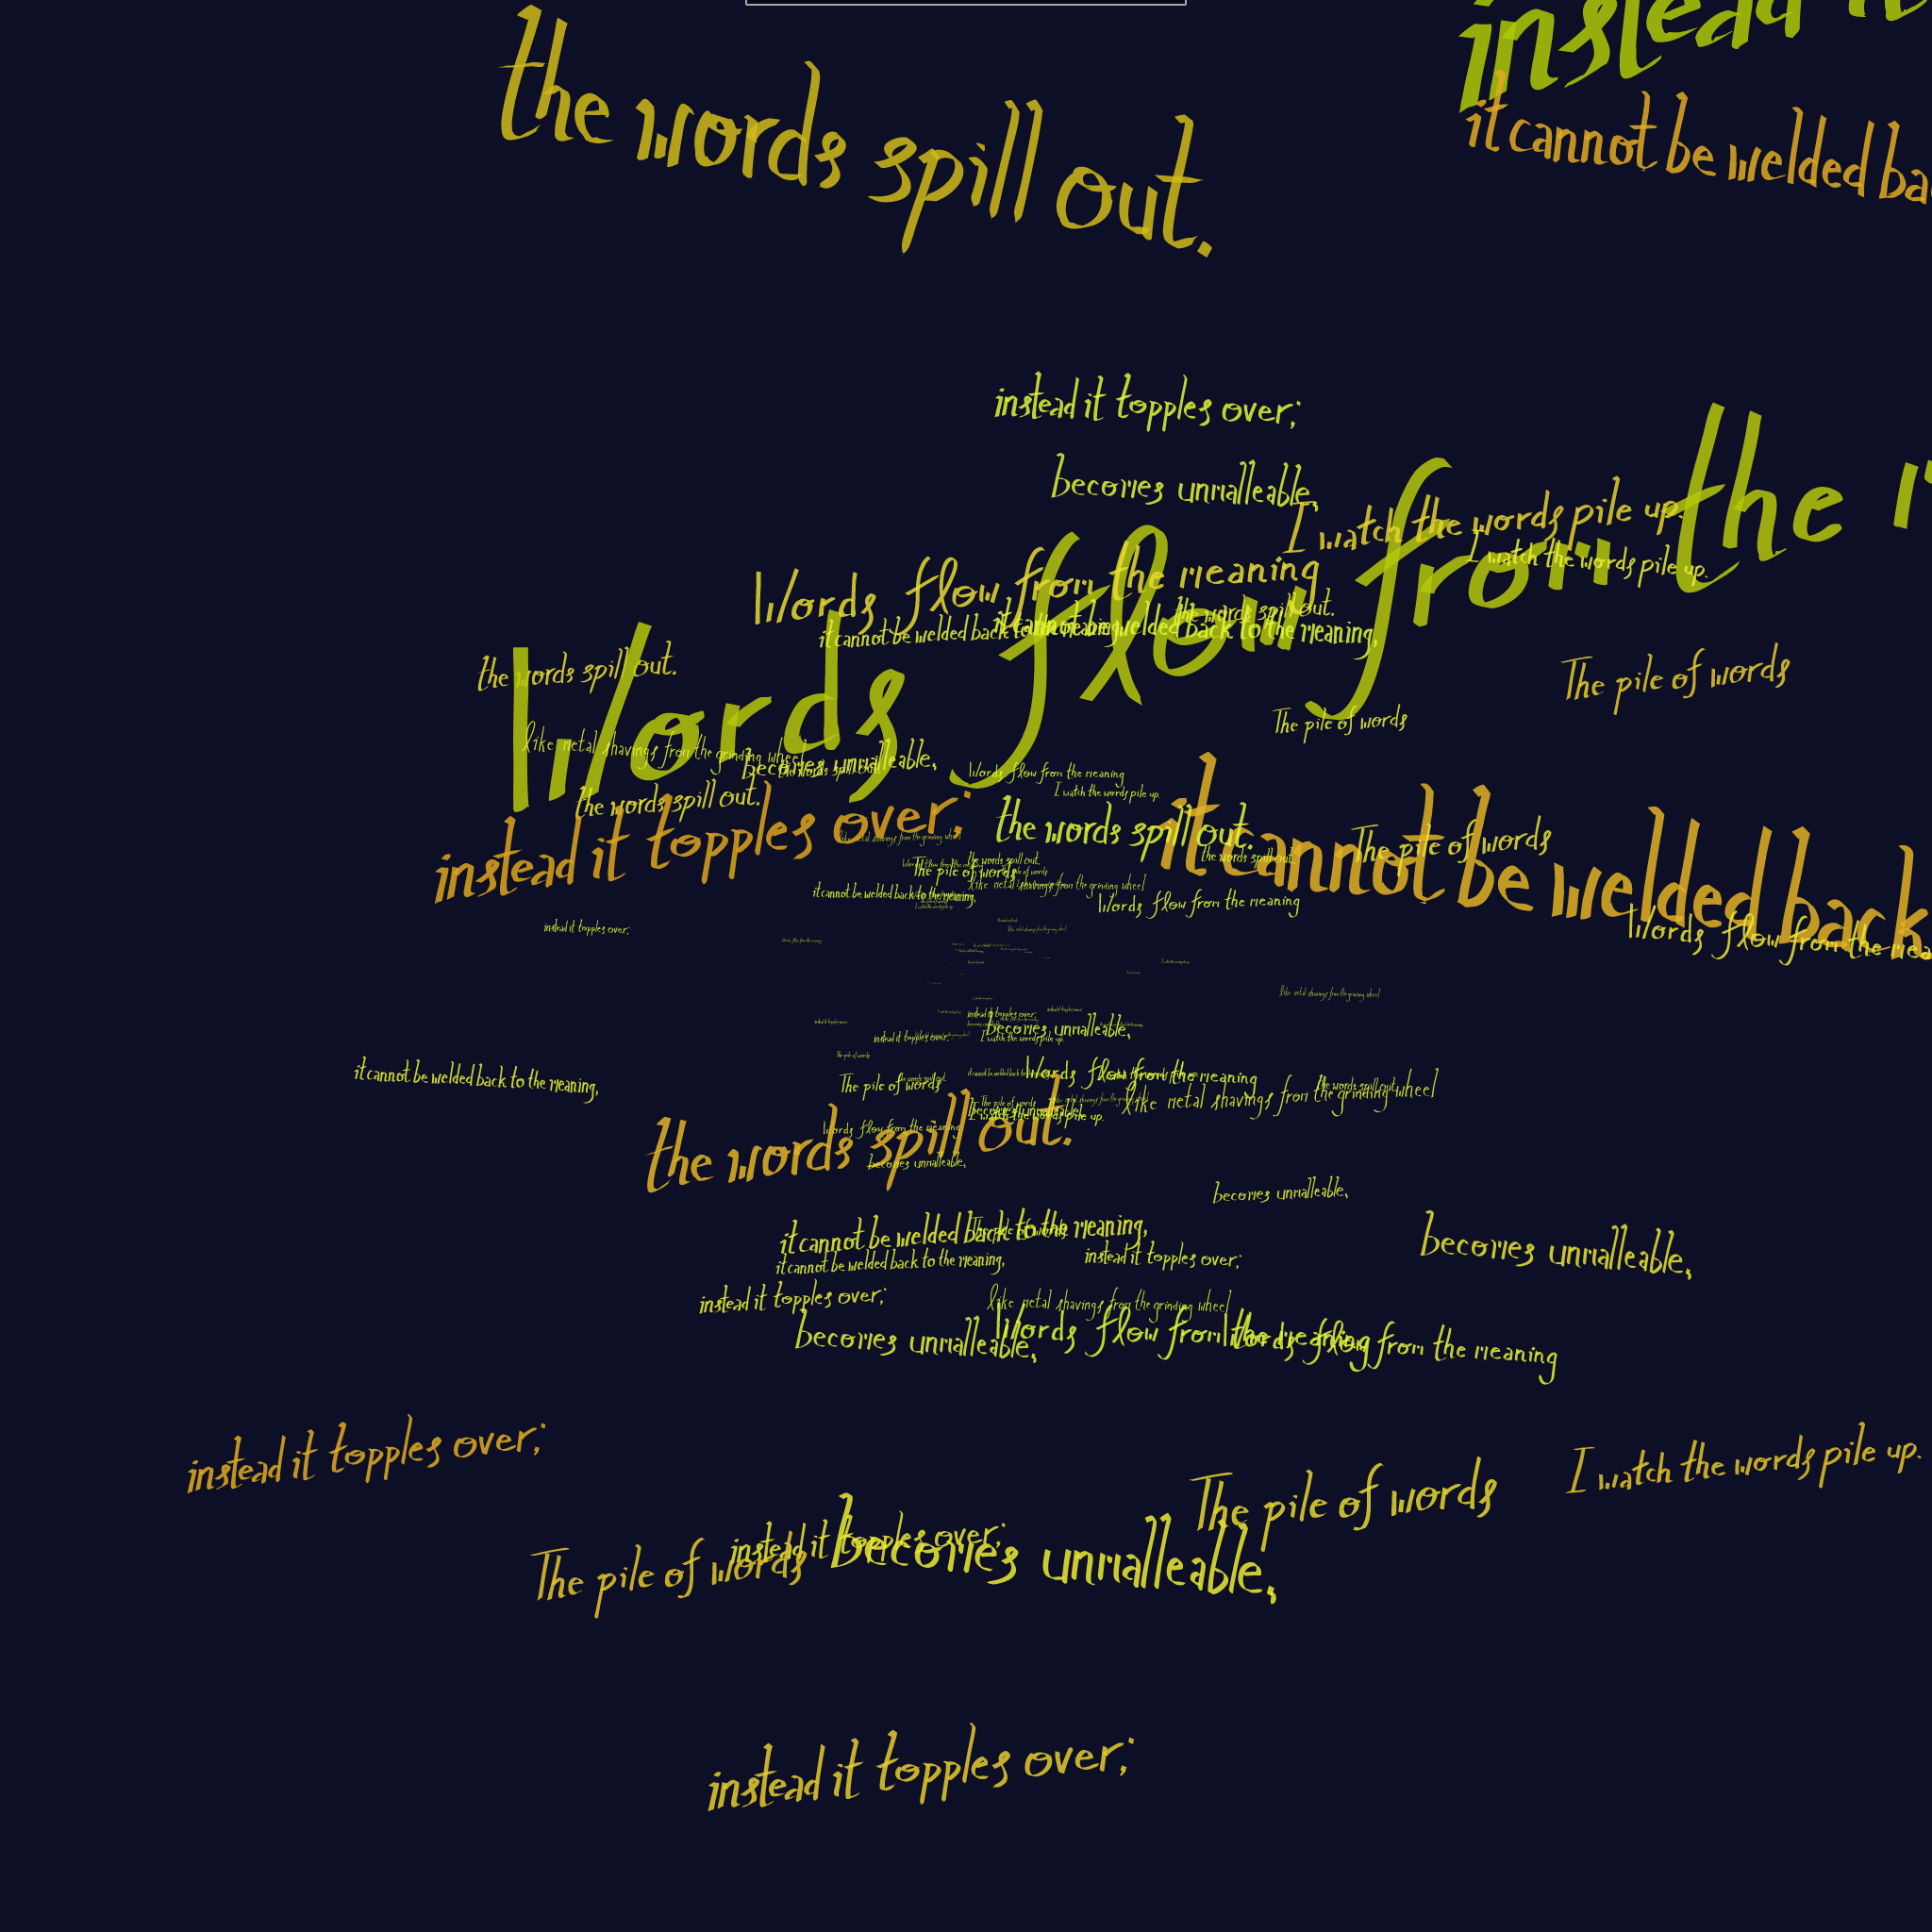 instead it
the words spill out.
it cannot be welded ba
instead it topples over;
becomes unmalleable,
I watch the words pile up.
Words flow from the
I watch the words pile up.
Words flow from the meaning
the words spill out.
it cannot be welded back to the meaning,
it cannot be welded back to the meaning,
the words spill out.
The pile of words
The pile of words
like metal shavings from the grinding wheel
becomes unmalleable,
the words spill out.
Words flow from the meaning
I watch the words pile up.
the words spill out.
instead it topples over;
the words spill out.
it cannot be welded back
The pile of words
like metal shavings from the grinding wheel
the words spill out.
the words spill out.
The pile of words
like metal shavings from the grinding wheel
it cannot be welded back to the meaning,
Words flow from the meaning
instead it topples over;
Words flow from the mea
like metal shavings from the grinding wheel
instead it topples over;
becomes unmalleable,
instead it topples over;
I watch the words pile up.
it cannot be welded back to the meaning,
Words flow from the meaning
The pile of words
the words spill out.
the words spill out.
like metal shavings from the grinding wheel
The pile of words
becomes unmalleable,
I watch the words pile up.
the words spill out.
Words flow from the meaning
becomes unmalleable,
becomes unmalleable,
it cannot be welded back to the meaning,
The pile of words
it cannot be welded back to the meaning,
instead it topples over;
becomes unmalleable,
instead it topples over;
like metal shavings from the grinding wheel
becomes unmalleable,
Words flow from the meaning
Words flow from the meaning
instead it topples over;
I watch the words pile up.
The pile of words
instead it topples over;
The pile of words
becomes unmalleable,
instead it topples over;